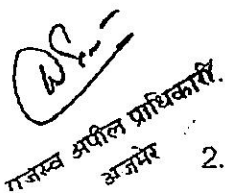 राजस्व अपील प्राधिकारी.
अजमेर
2.